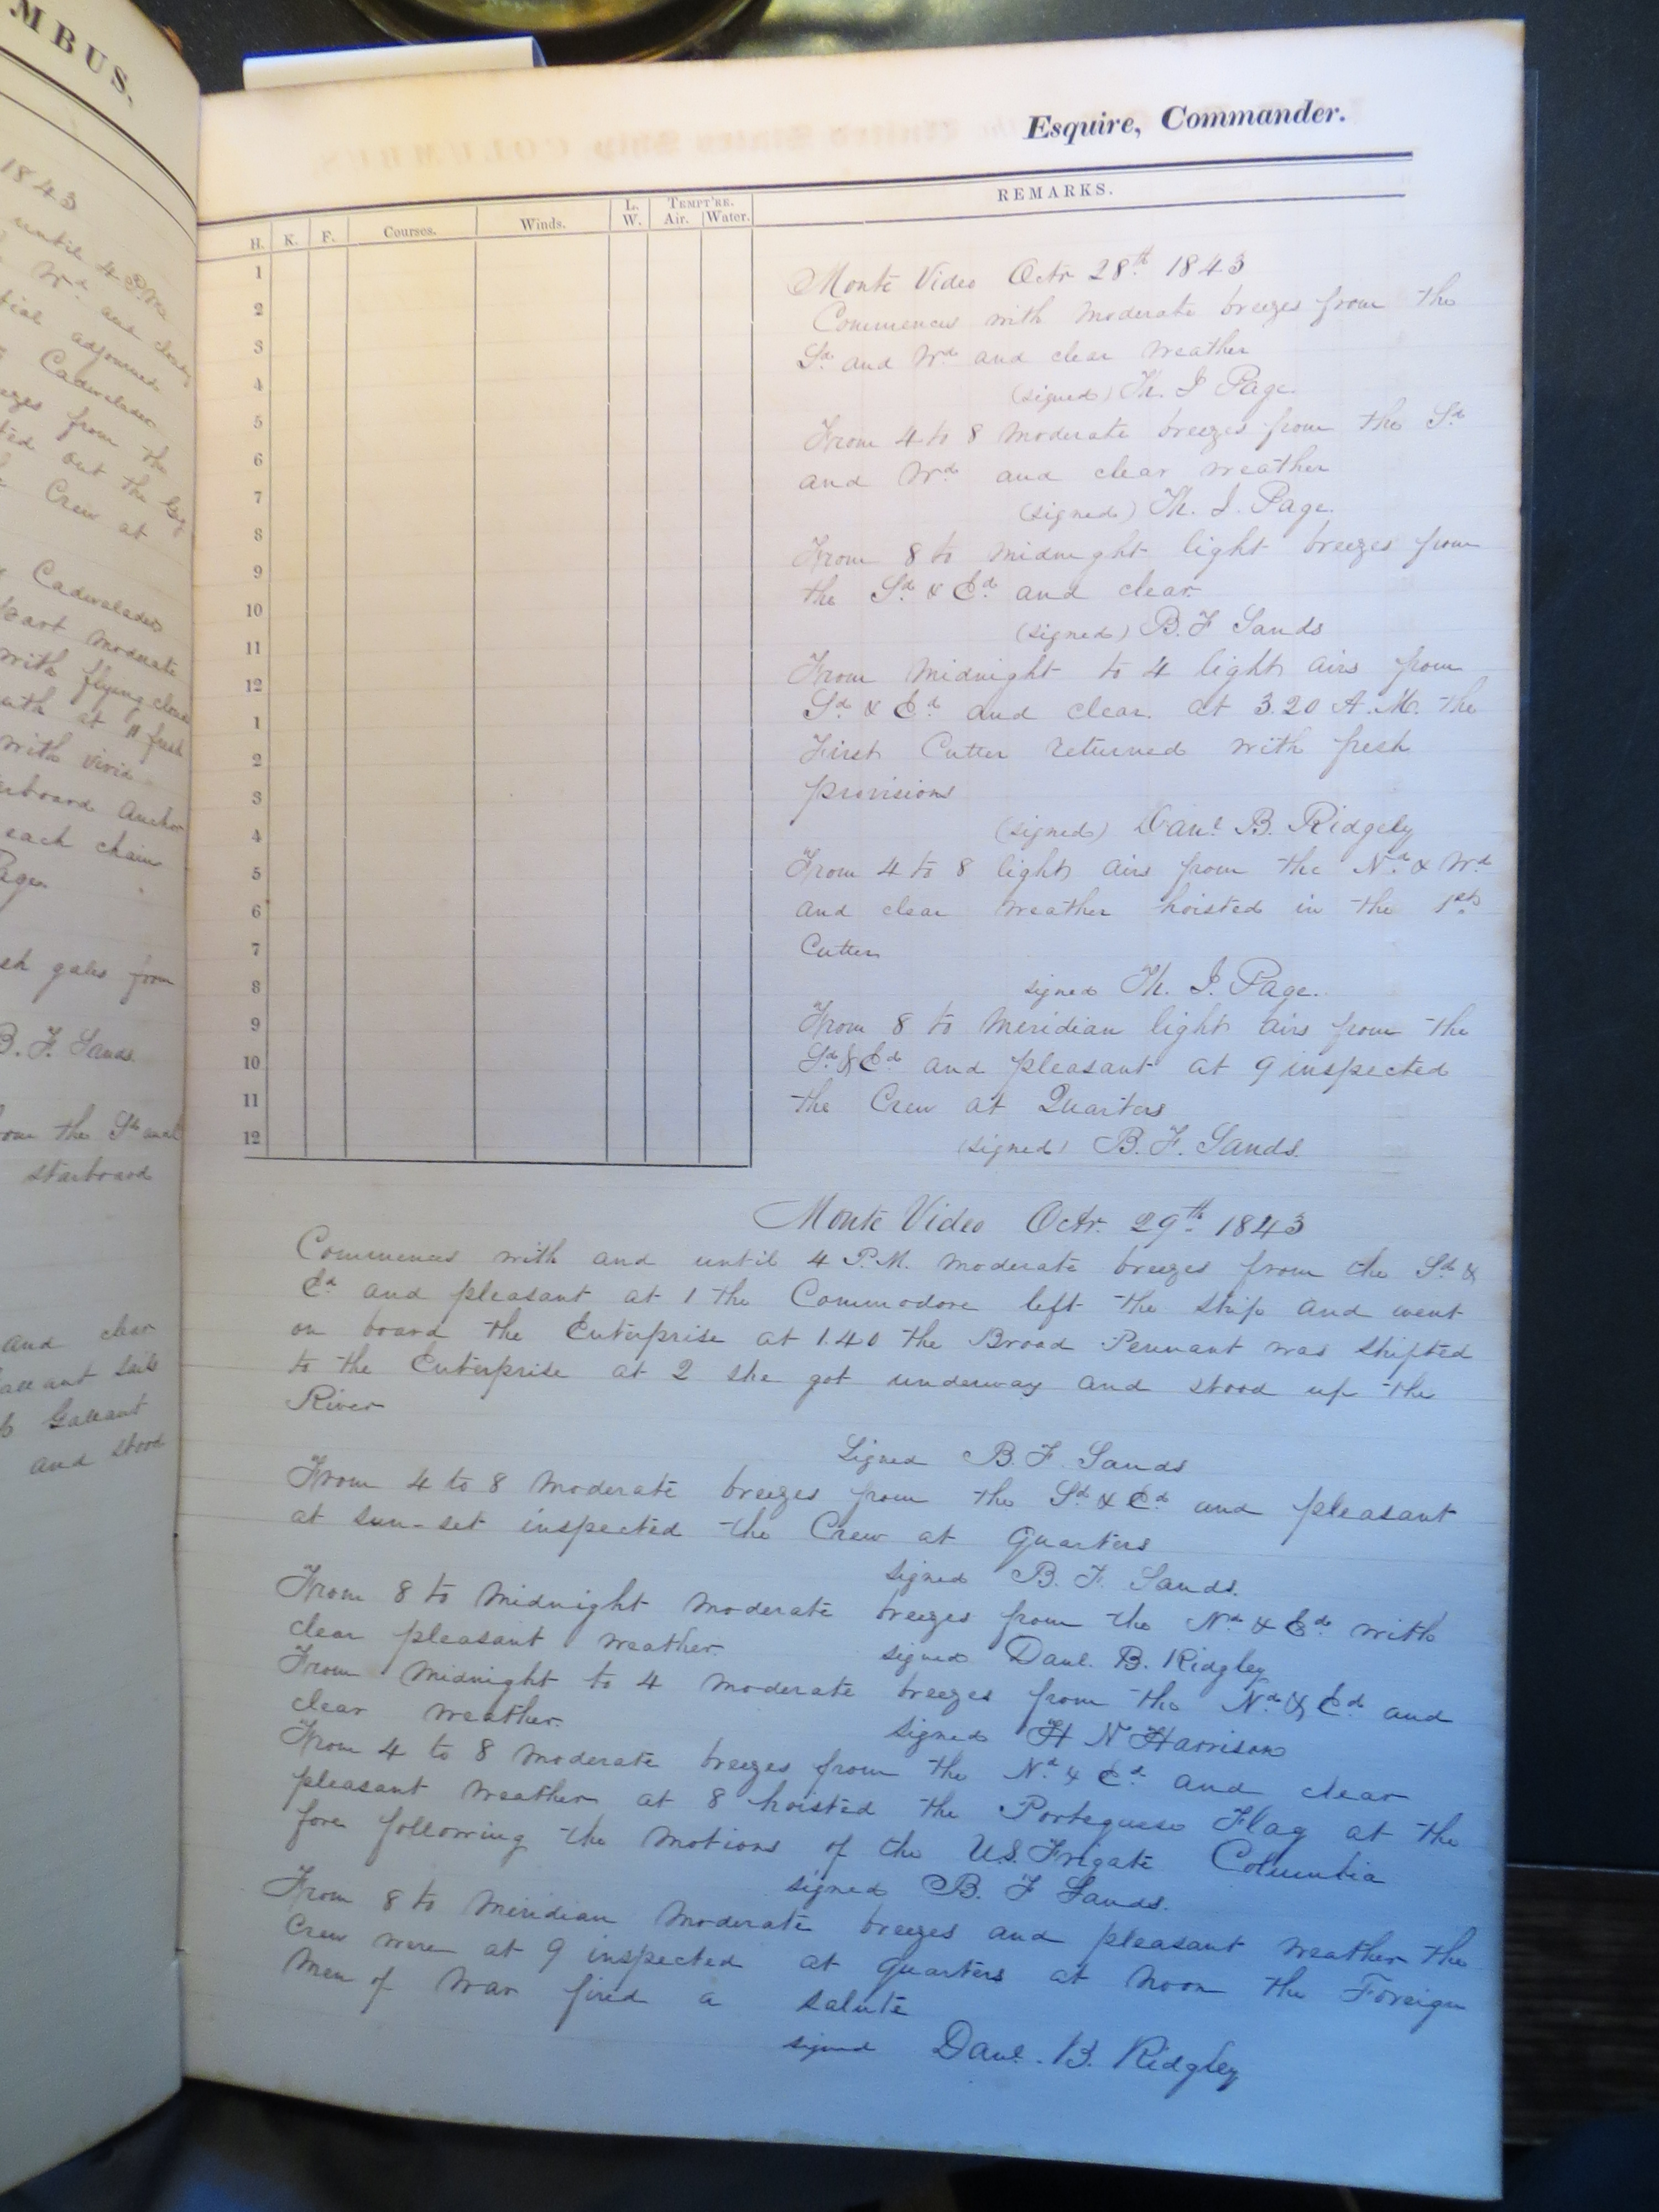 MBUS.
1843
until 4 P.M.
Wd. and cloudy
adjourned
Cadwalader
from the
out the
Crew at
Cadwalader
moderate
with flying clouds
at 11 fresh
with vivid
Anchor
each chain
Page
gales from
B. F. Sands.
from the Sd. and
starboard
and clear
Gallant
and stood
Esquire, Commander.
H. K. F. Courses. Winds. L. W. TEMPT'RE. Air. Water. REMARKS.
1
2
3
4
5
6
7
8
9
10
11
12
1
2
3
4
5
6
7
8
9
10
11
12
Monte Video Octr 28th 1843
Commences with moderate breezes from the
Sd. and Wd. and clear weather
(signed) Th. J Page.
From 4 to 8 moderate breezes from the Sd.
and Wd. and clear weather
(signed) Th. J. Page.
From 8 to midnight light breezes from
the Sd. & Ed. and clear.
(signed) B. F Sands
From midnight to 4 light airs from
Sd. & Ed. and clear. at 3.20 A.M. the
First Cutter returned with fresh
provisions
(signed) Danl. B. Ridgely
From 4 to 8 light airs from the Nd. & Wd.
and clear weather hoisted in the 1st.
Cutter
signed Th. J. Page.
From 8 to Meridian light airs from the
Sd. & Ed. and pleasant at 9 inspected
the Crew at Quarters
(signed) B. F. Sands.
Monte Video Octr. 29th. 1843
Commences with and until 4 P.M. moderate breezes from the Sd. &
Ed. and pleasant at 1 the Commodore left the ship and went
on board the Enterprise at 1.40 the Broad Pennant was shifted
to the Enterprise at 2 she got underway and stood up the
River
Signed B. F. Sands
From 4 to 8 moderate breezes from the Sd. & Ed. and pleasant
at sun-set inspected the Crew at quarters
Signed B. F. Sands.
From 8 to midnight moderate breezes from the Nd. & Ed. with
clear pleasant weather.
signed Danl. B. Ridgley
From midnight to 4 moderate breezes from the Nd. & Ed. and
clear weather.
Signed H N Harrison
From 4 to 8 moderate breezes from the Nd. & Ed. and clear
pleasant weather at 8 hoisted the Porteguese Flag at the
fore following the motions of the U.S. Frigate Columbia
signed B. F Sands.
From 8 to Meridian moderate breezes and pleasant weather the
Crew were at 9 inspected at quarters at noon the Foreign
Men of War fired a salute
signed Danl. B. Ridgley